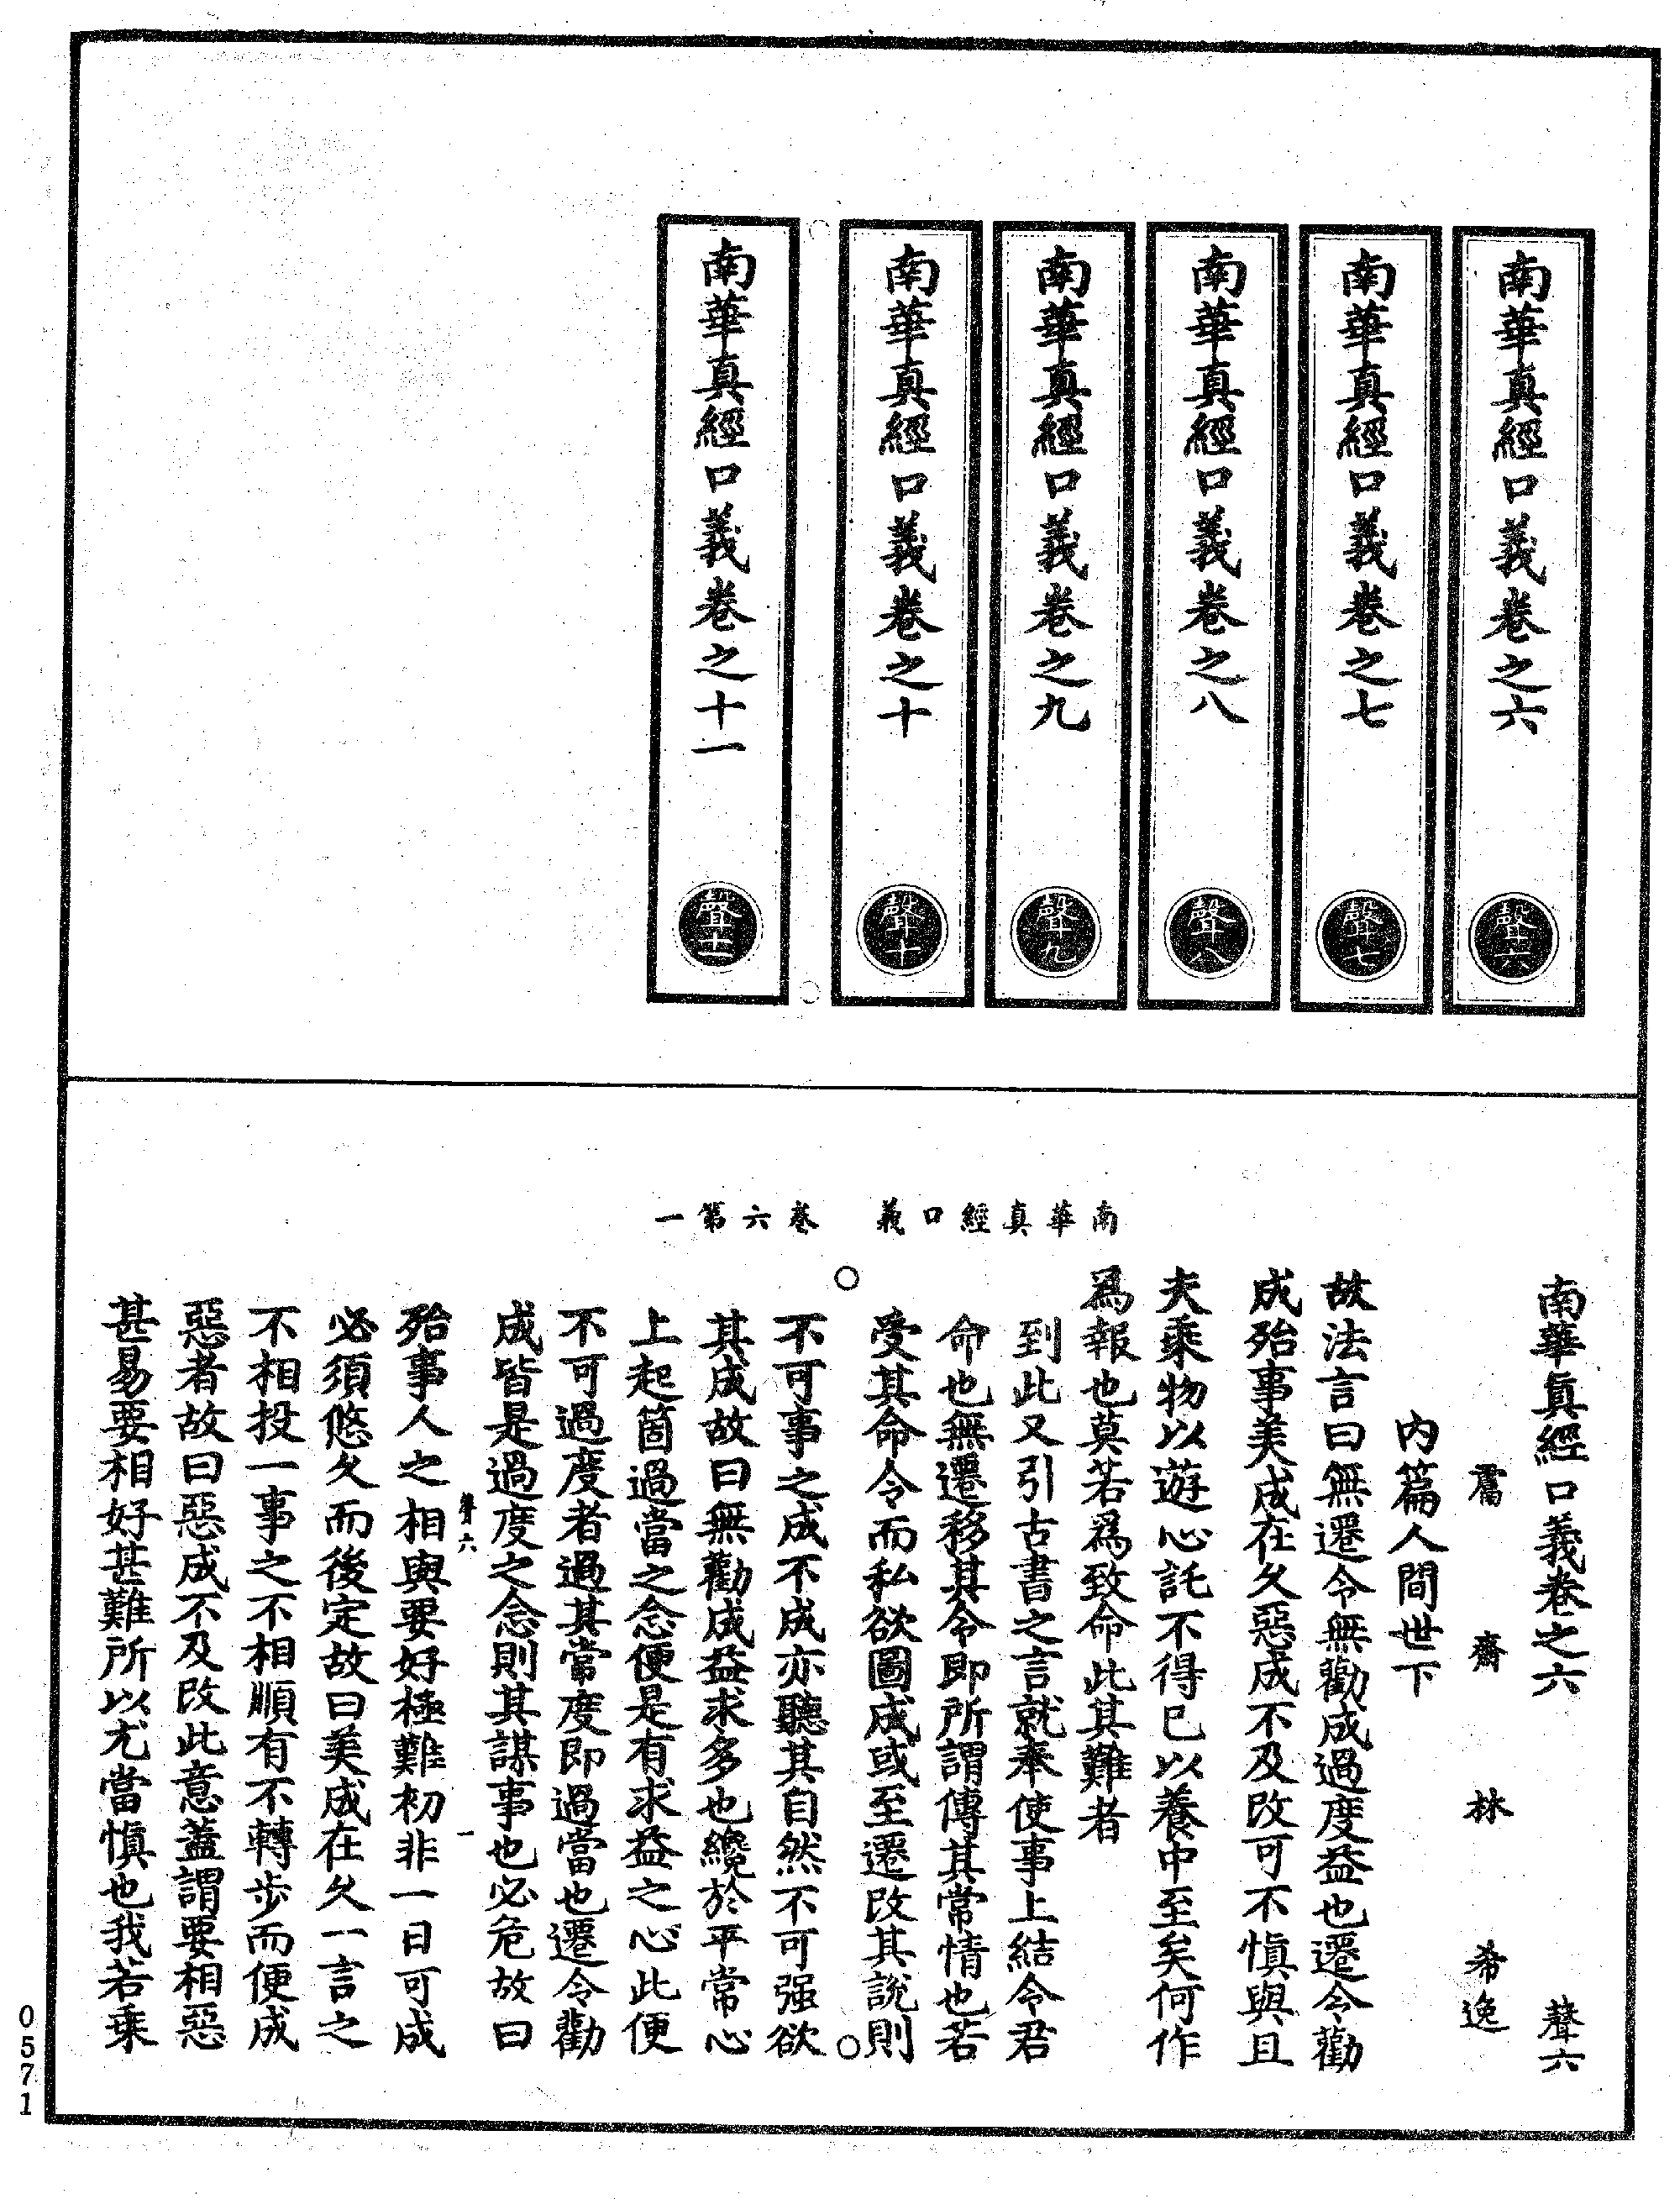 南華真經口義卷之六
聲六
南華真經口義卷之七
聲七
南華真經口義卷之八
聲八
南華真經口義卷之九
聲九
南華真經口義卷之十
聲十
南華真經口義卷之十一
聲十一
南華真經口義　卷六第一
南華眞經口義卷之六　聲六
鬳齋林希逸
内篇人間世下
故法言曰無遷令無勸成過度益也遷令勸
成殆事美成在久惡成不及改可不愼與且
夫乘物以遊心託不得已以養中至矣何作
爲報也莫若爲致命此其難者
到此又引古書之言就奉使事上結令君
命也無遷移其令即所謂傳其常情也若
受其命令而私欲圖成或至遷改其說則
不可事之成不成亦聽其自然不可强欲
其成故曰無勸成益求多也纔於平常心
上起箇過當之念便是有求益之心此便
不可過度者過其常度即過當也遷令勸
成皆是過度之念則其謀事也必危故曰
聲六　一
殆事人之相與要好極難初非一日可成
必須悠久而後定故曰美成在久一言之
不相投一事之不相順有不轉步而便成
惡者故曰惡成不及改此意蓋謂要相惡
甚易要相好甚難所以尤當愼也我若乘
0571